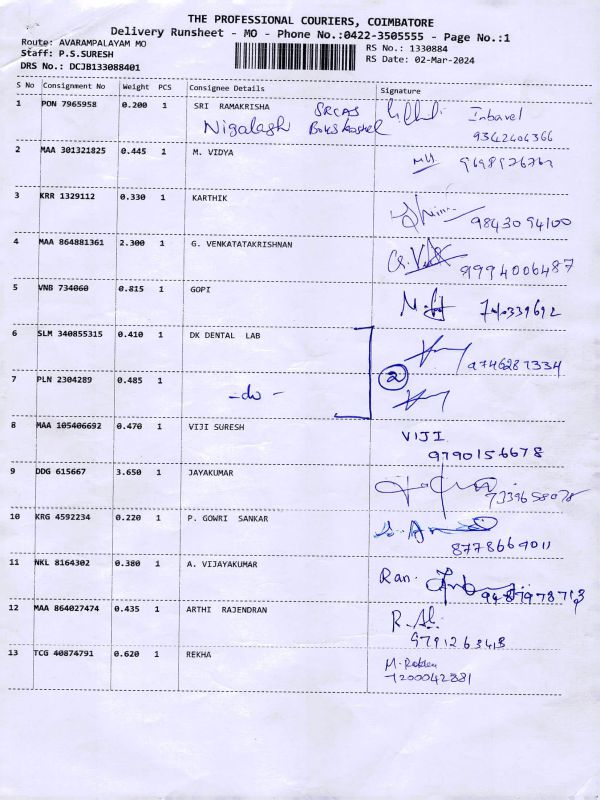 THE PROFESSIONAL COURIERS, COIMBATORE
Delivery Runsheet - MO - Phone No.:0422-3505555 - Page No.:1
Route: AVARAMPALAYAM MO
RS No.: 1330884
Staff: P.S.SURESH
RS Date: 02-Mar-2024
DRS No.: DCJB133088401
S No Consignment No Weight PCS Consignee Details Signature
1 PON 7965958 0.200 1 SRI RAMAKRISHA SRCAS Inbavel
Nigalash Boys hostel 9342404366
2 MAA 301321825 0.445 1 M. VIDYA
3 KRR 1329112 0.330 1 KARTHIK
9843094100
4 MAA 864881361 2.300 1 G. VENKATATAKRISHNAN
9994006487
5 VNB 734060 0.815 1 GOPI
6 SLM 340855315 0.410 1 DK DENTAL LAB
9746287334
7 PLN 2304289 0.485 1 -do- 2
8 MAA 105406692 0.470 1 VIJI SURESH VIJI
9790156678
9 DDG 615667 3.650 1 JAYAKUMAR
7339658078
10 KRG 4592234 0.220 1 P. GOWRI SANKAR
8778669011
11 NKL 8164302 0.380 1 A. VIJAYAKUMAR Ran.
12 MAA 864027474 0.435 1 ARTHI RAJENDRAN
9791263413
13 TCG 40874791 0.620 1 REKHA
7200042881